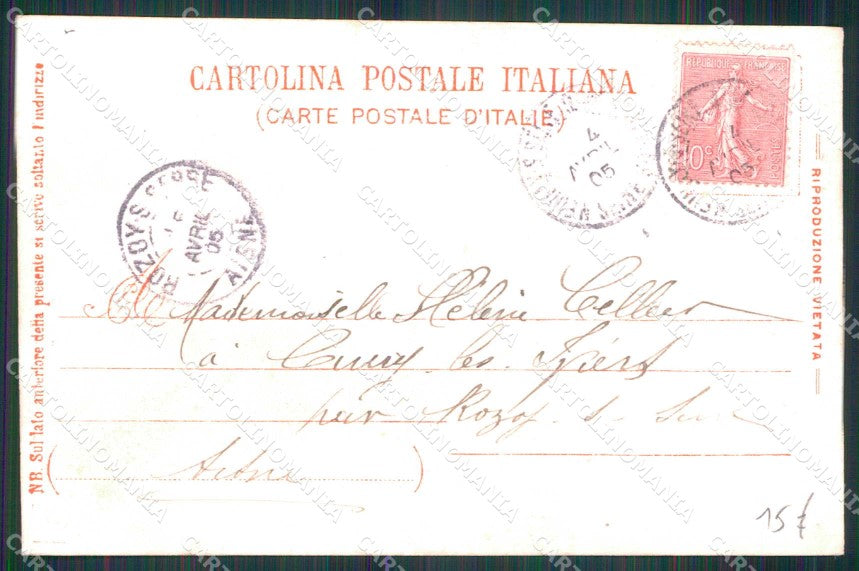 CARTOLINA POSTALE ITALIANA
(CARTE POSTALE D'ITALIE)
REPUBLIQUE FRANÇAISE
10c
POSTES
4
AVRIL
05
4
AVRIL
05
ROZOY-S-SERRE
AVRIL
05
AISNE
Mademoiselle Hélène Cellier
à les
par Rozoy s
Aisne
NB. Sul lato anteriore della presente si scrive soltanto l'indirizzo
RIPRODUZIONE VIETATA
15 £
CARTOLINOMANIA